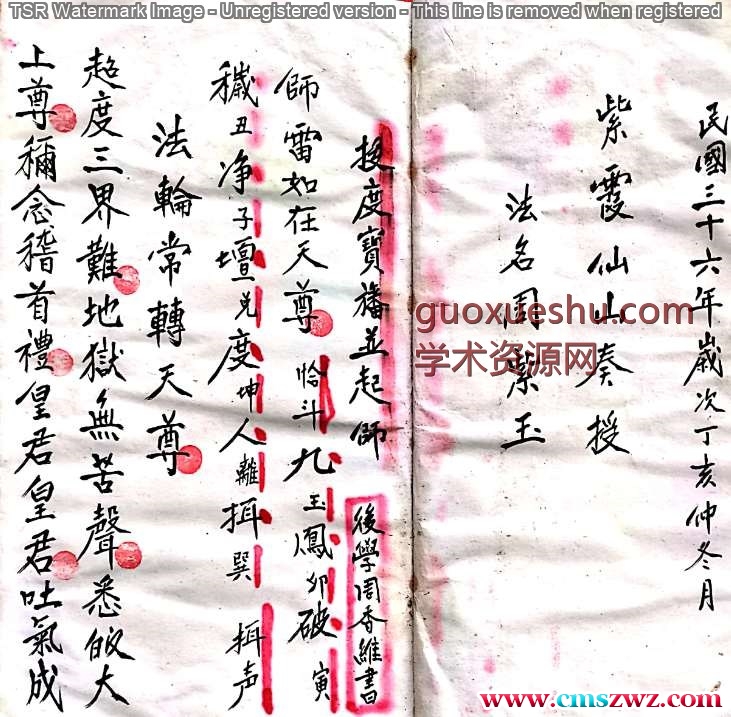 TSR Watermark Image - Unregistered version - This line is removed when registered
民國三十六年歲次丁亥仲冬月
紫霞仙山奏授
法名周紫玉
guoxueshu.com
学术资源网
授度寶旛並起師
後學周香維書
師雷如在天尊 恰斗九玉鳳卯破寅
穢丑净子壇兌度坤人離揖巽 揖声
法輪常轉天尊
超度三界難地獄無苦聲悉皈大
上尊稱念稽首禮皇君皇君吐氣成
www.cmszwz.com